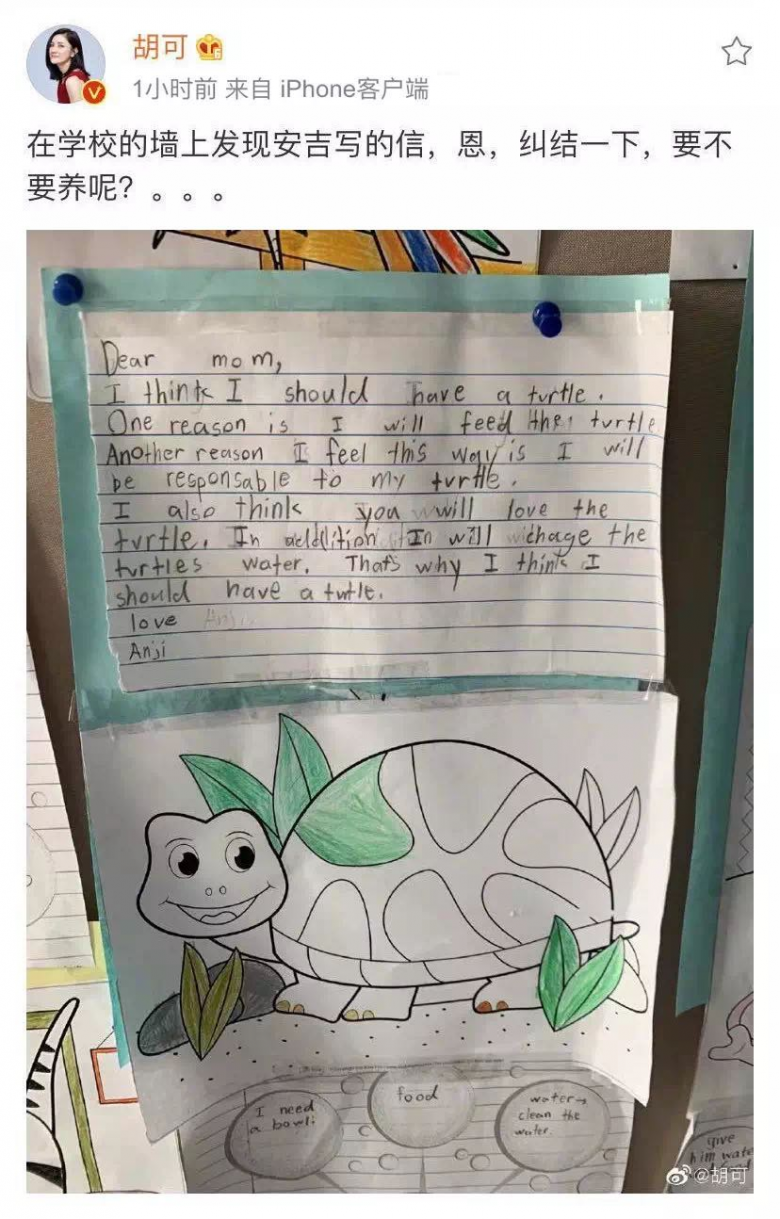 胡可
1小时前 来自 iPhone客户端
在学校的墙上发现安吉写的信，恩，纠结一下，要不
要养呢？。。。
Dear mom,
I think I should have a turtle.
One reason is I will feed the turtle
Another reason I feel this way is I will
be responsable to my turtle.
I also think you will love the
turtle. In addition In will chage the
turtles water. That's why I think I
should have a tutle.
love Anji
Anji
I need
a bowl:
food
water→
clean the
water.
give
him wate
@胡可